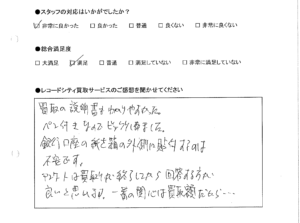 ●スタッフの対応はいかがでしたか？
☑非常に良かった □良かった □普通 □良くない □非常に良くない
●総合満足度
□大満足 ☑満足 □普通 □満足していない □非常に満足していない
●レコードシティ買取サービスのご感想を聞かせてください
買取の説明書もわかりやすかった。
ペン付きなんでビックリしました。
銀行口座の 箱の外側に貼付するのは
不安です。
アンケートは買取りが終了したら回答する方が
良いと思います。一番の関心は買取額だから…